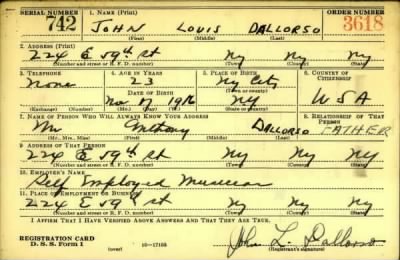 SERIAL NUMBER 1. NAME (Print) ORDER NUMBER
742 JOHN LOUIS DALLORSO 3618
(First) (Middle) (Last)
2. ADDRESS (Print)
224 E 59th St NY NY NY
(Number and street or R. F. D. number) (Town) (County) (State)
3. TELEPHONE 4. AGE IN YEARS 5. PLACE OF BIRTH 6. COUNTRY OF CITIZENSHIP
None 23 NY City
DATE OF BIRTH
Nov 17 1916 NY USA
(Exchange) (Number) (Mo.) (Day) (Yr.) (State or country)
7. NAME OF PERSON WHO WILL ALWAYS KNOW YOUR ADDRESS 8. RELATIONSHIP OF THAT PERSON
Mr Anthony DALLORSO FATHER
(Mr., Mrs., Miss) (First) (Middle) (Last)
9. ADDRESS OF THAT PERSON
224 E 59th St NY NY NY
(Number and street or R. F. D. number) (Town) (County) (State)
10. EMPLOYER'S NAME
Self Employed Musician
11. PLACE OF EMPLOYMENT OR BUSINESS
224 E 59th St NY NY NY
(Number and street or R. F. D. number) (Town) (County) (State)
I AFFIRM THAT I HAVE VERIFIED ABOVE ANSWERS AND THAT THEY ARE TRUE.
REGISTRATION CARD
D. S. S. Form 1 (over) 16-17105 John L. Dallorso
(Registrant's signature)